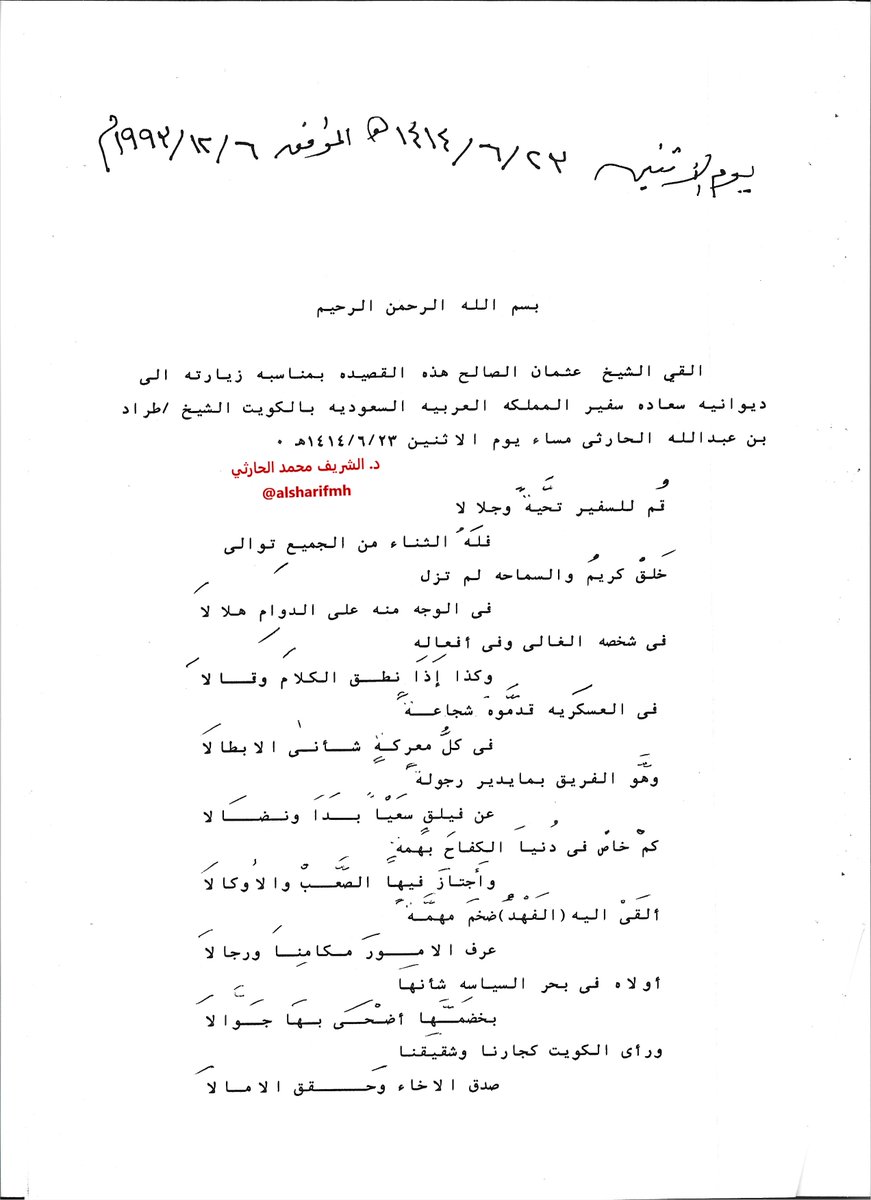 يوم الإثنين ١٤١٤/٦/٢٣ هـ الموافق ١٩٩٣/١٢/٦م
بسم الله الرحمن الرحيم
القي الشيخ عثمان الصالح هذه القصيده بمناسبه زيارته الى
ديوانيه سعاده سفير المملكه العربيه السعوديه بالكويت الشيخ /طراد
بن عبدالله الحارثى مساء يوم الاثنين ١٤١٤/٦/٢٣هـ ٠
د. الشريف محمد الحارثي
@alsharifmh
قُم للسفير تحَّيةً وجلا لا
فلَهُ الثناء من الجميع توالى
خَلقْ كريمُ والسماحه لم تزل
فى الوجه منه على الدوام هلا لاَ
فى شخصه الغالى وفى أفعالِهِ
وكذا إَذَا نطــق الكلامَ وقــالاَ
فى العسكَريه قدمَّوهَ شجاعــةً
فى كلُّ معركـةٍ شــأنىٰ الابطالاَ
وهَّو الفريق بمايدير رجولةً
عن فيلقٍ سعَيْاً بــدَاَ ونـضَـالا
كمْ خاضْ فى دُنياَ الكفاحَ بهمةٍ
وأجتازَ فيها الصَّعــبْ والاُوكالاَ
ألقَىْ اليه(الفَهْدُ)ضخمَ مهمَّـةً
عرف الامــورَ مـكامنِـاَ ورجالاَ
أولاه فى بحر السياسهِ شأنهاَ
بخضمَّــها أضْحَـى بـهَا جـَّوالاَ
ورأى الكويت كجارنا وشقيقَنا
صدق الاخاء وَحــــقق الامـالاَ